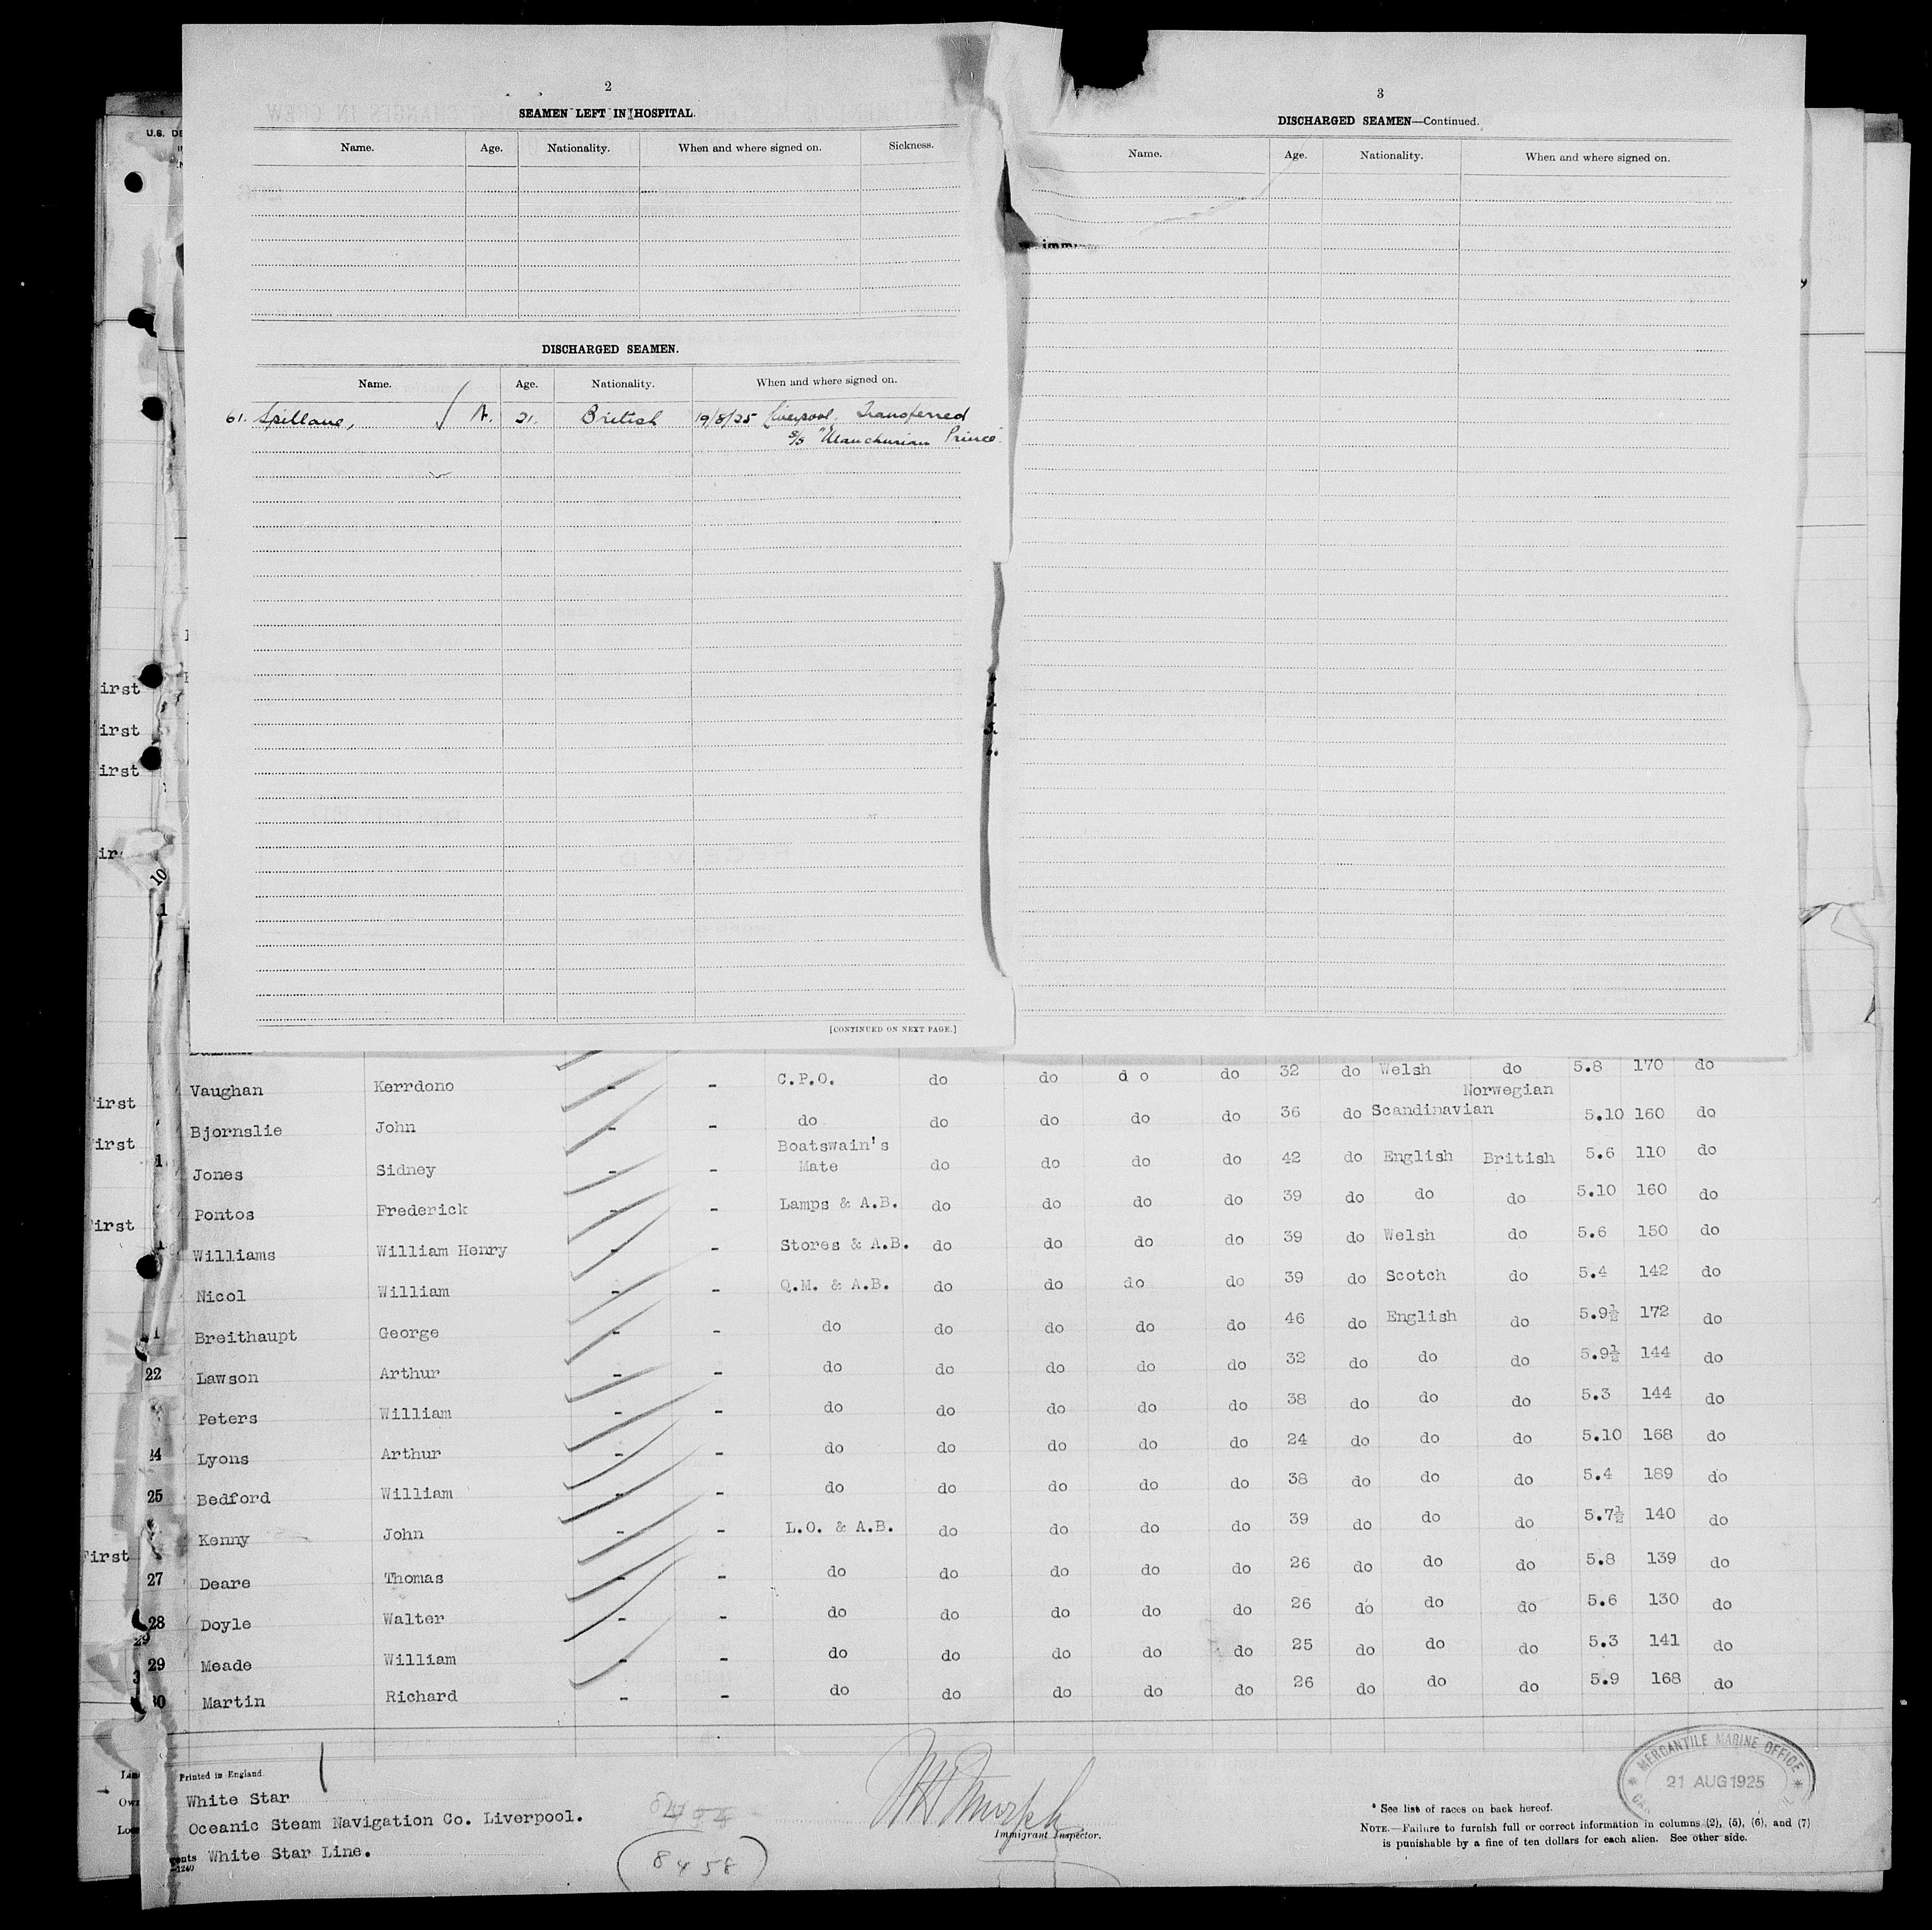 2
SEAMEN LEFT IN HOSPITAL.
Name. Age. Nationality. When and where signed on. Sickness.
DISCHARGED SEAMEN.
Name. Age. Nationality. When and where signed on.
61. Spillane, A. 21. British 19/8/25 Liverpool. Transferred
s/s "Manchurian Prince".
[CONTINUED ON NEXT PAGE.]
3
DISCHARGED SEAMEN—Continued.
Name. Age. Nationality. When and where signed on.
U.S. DE
irst
irst
irst
10
irst
irst
irst
First
Vaughan Kerrdono - - C.P.O. do do do do 32 do Welsh do 5.8 170 do
Norwegian
Bjornslie John - - do do do do do 36 do Scandinavian 5.10 160 do
Boatswain's
Jones Sidney - - Mate do do do do 42 do English British 5.6 110 do
Pontos Frederick - - Lamps & A.B. do do do do 39 do do do 5.10 160 do
Williams William Henry - - Stores & A.B. do do do do 39 do Welsh do 5.6 150 do
Nicol William - - Q.M. & A.B. do do do do 39 do Scotch do 5.4 142 do
Breithaupt George - - do do do do do 46 do English do 5.9½ 172 do
22 Lawson Arthur - - do do do do do 32 do do do 5.9½ 144 do
Peters William - - do do do do do 38 do do do 5.3 144 do
24 Lyons Arthur - - do do do do do 24 do do do 5.10 168 do
25 Bedford William - - do do do do do 38 do do do 5.4 189 do
Kenny John - - L.O. & A.B. do do do do 39 do do do 5.7½ 140 do
27 Deare Thomas - - do do do do do 26 do do do 5.8 139 do
28 Doyle Walter - - do do do do do 26 do do do 5.6 130 do
29
29 Meade William - - do do do do do 25 do do do 5.3 141 do
30 Martin Richard - - do do do do do 26 do do do 5.9 168 do
Printed in England.
White Star
Oceanic Steam Navigation Co. Liverpool.
White Star Line.
8458
Immigrant Inspector.
MERCANTILE MARINE OFFICE
21 AUG 1925
* See list of races on back hereof.
NOTE.—Failure to furnish full or correct information in columns (2), (5), (6), and (7)
is punishable by a fine of ten dollars for each alien. See other side.